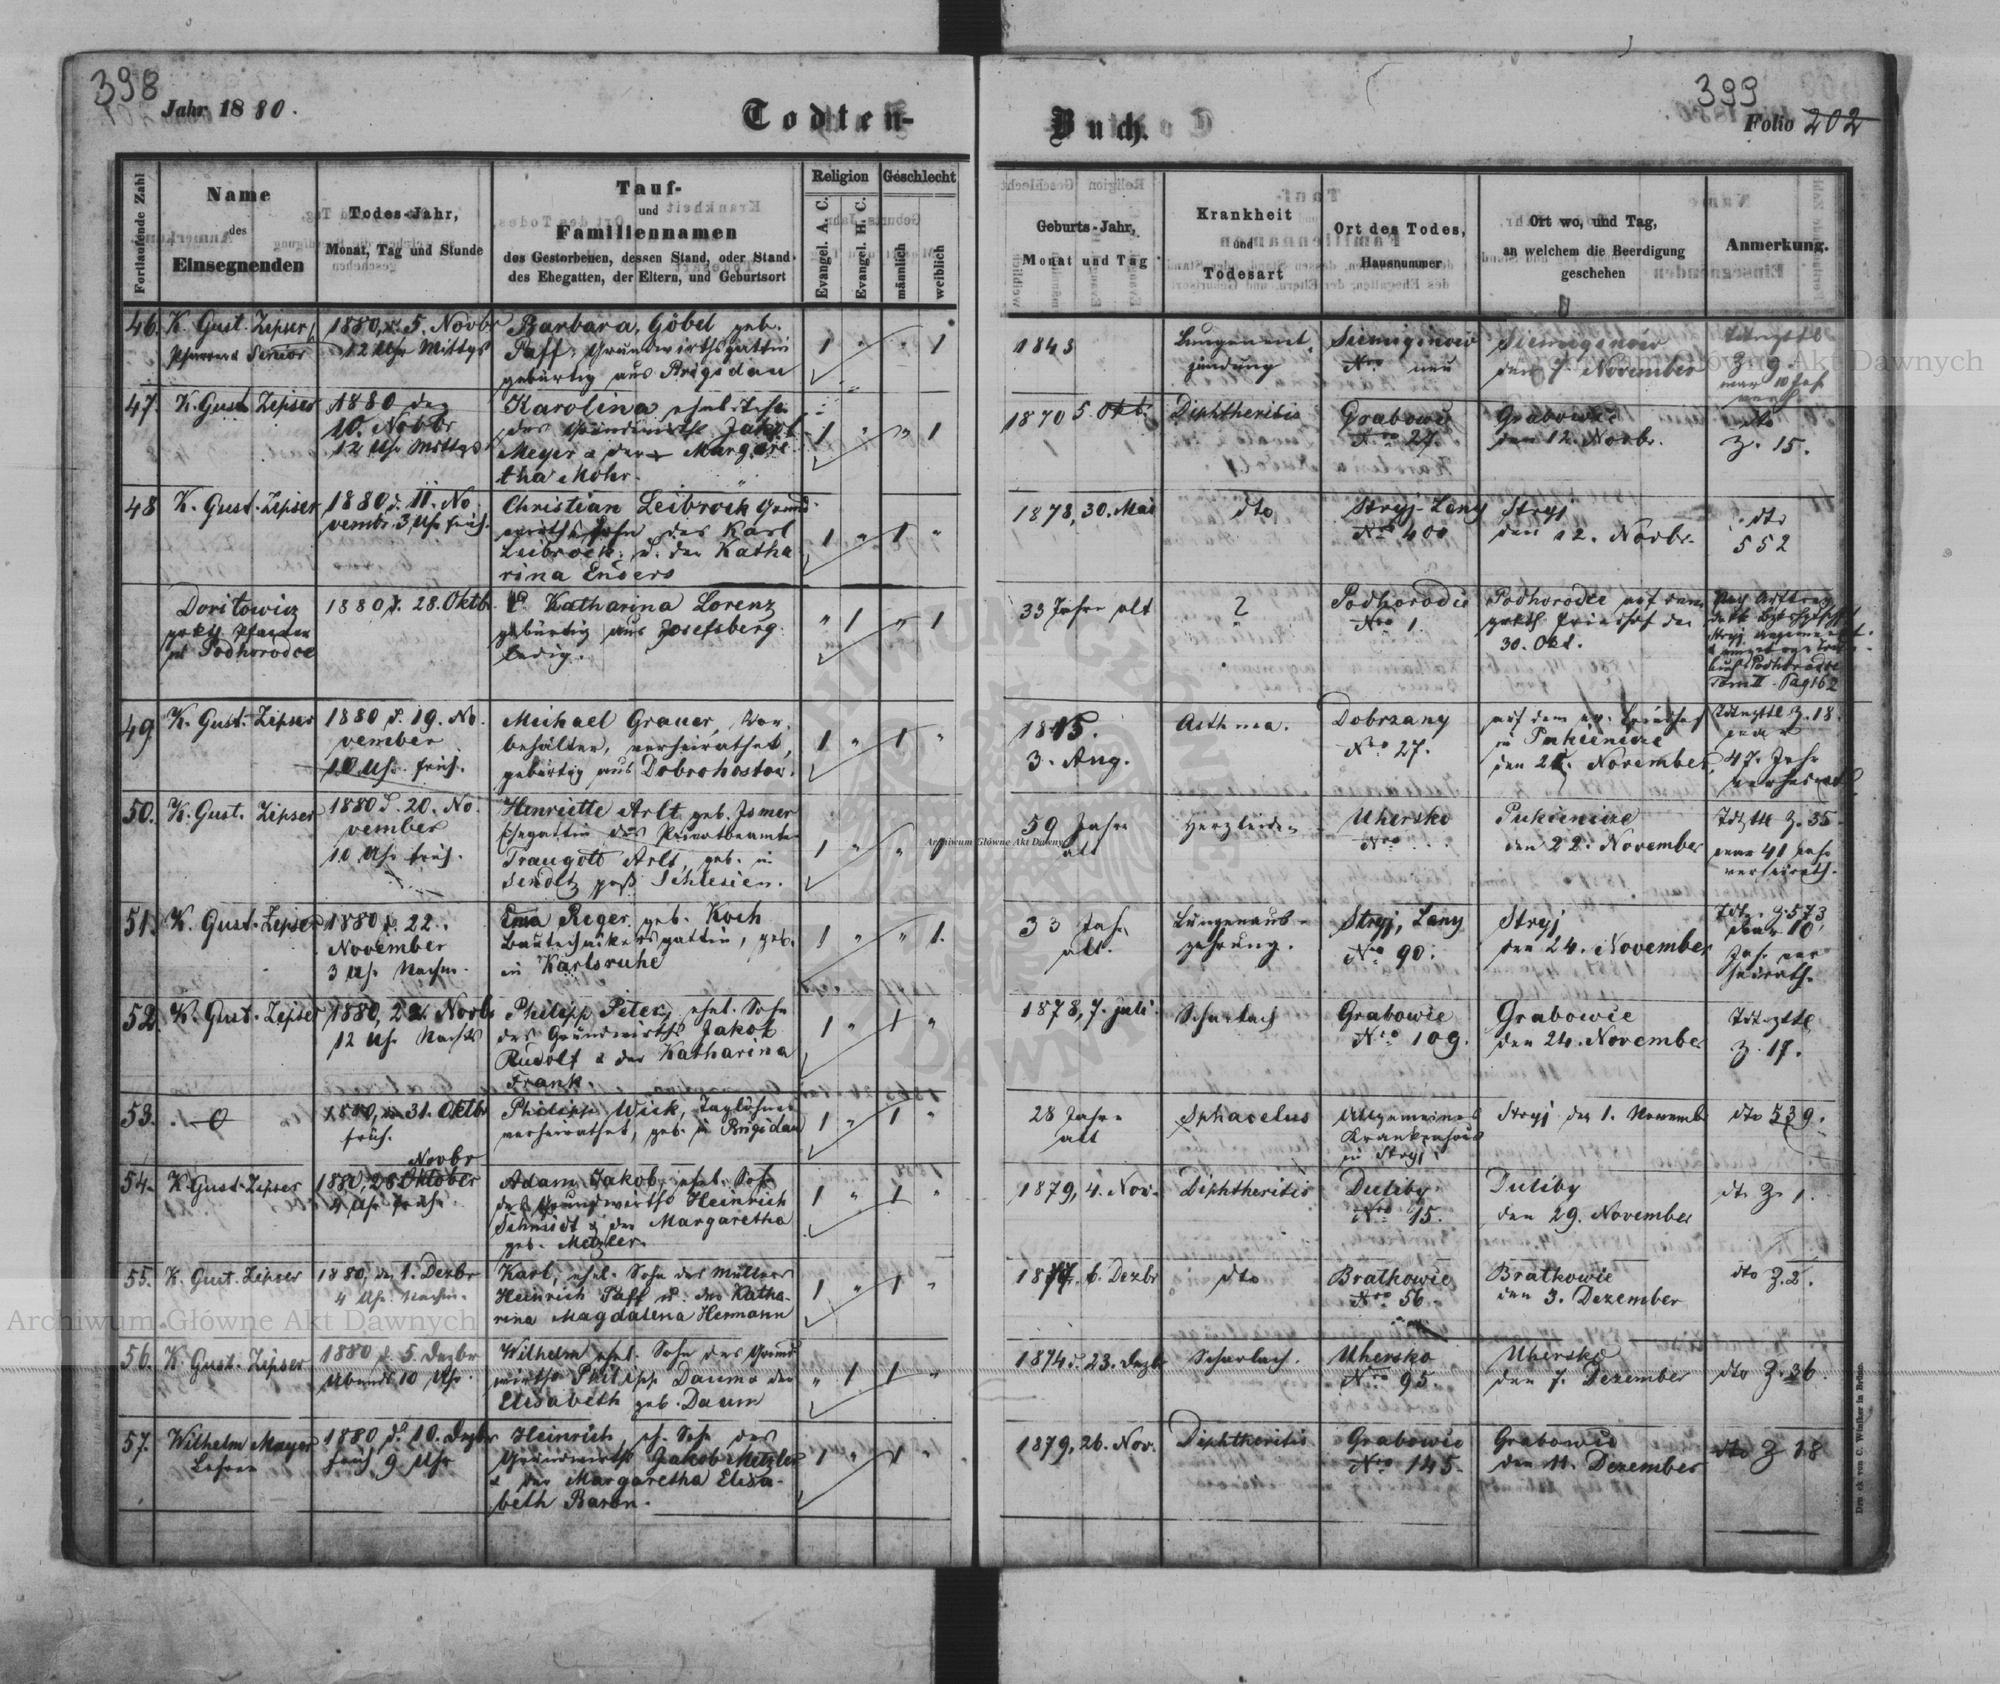 398
Jahr 1880.
Todten-
Buch.
399
Folio 202
Fortlaufende Zahl
Name
des
Einsegnenden
Todes-Jahr,
Monat, Tag und Stunde
Tauf-
und
Familiennamen
des Gestorbenen, dessen Stand, oder Stand
des Ehegatten, der Eltern, und Geburtsort
Religion
Evangel. A. C.
Evangel. H. C.
Geschlecht
männlich
weiblich
Geburts-Jahr,
Monat und Tag
Krankheit
und
Todesart
Ort des Todes,
Hausnummer
Ort wo, und Tag,
an welchem die Beerdigung
geschehen
Anmerkung.
46. K. Gust. Zipser
Pfarrer u Senior
1880, d. 5. Novbr
12 Uhr Mittgs
Barbara Göbel geb.
Paff Grundwirthsgattin
gebürtig aus Brigidau
1 " " 1
1843
Lungenent
zündung
Siemiginow
Nro neu
Siemiginow
den 7. November
Z. 9
war 10 Jah
47. K. Gust. Zipser
1880 den
10. Novbr
12 Uhr Mittgs
Karolina, ehel. Toch
des Grundwirths Jakob
Meyer u der Margare
tha Mohr.
1 " " 1
1870 5 Okt.
Diphtheritis
Grabowce
Nro 27.
Grabowce
den 12. Novbr.
dto
Z. 15.
48 K. Gust. Zipser
1880 d. 11. No
vembr. 3 Uhr früh.
Christian Leibrock Grund
wirths Sohn des Karl
Leibrock u. der Katha
rina Enders
1 " 1 "
1878, 30. Mai
dto
Stryj-Lany
Nro 400
Stryj
den 12. Novbr.
dto
552
Doritowicz
Pfarrer
in Podhorodce
1880 d. 28. Oktb.
Katharina Lorenz
gebürtig aus Josefsberg
ledig.
" 1 " 1
33 Jahre alt
?
Podhorodce
Nro 1
Podhorodce auf dem
Friedhof den
30. Okt.
Podhorodce
Tom II Pag 162
49 K. Gust. Zipser
1880 d. 19. No
vember
10 Uhr früh.
Michael Grauer, Vor
behälter, verheirathet,
gebürtig aus Dobrohostow.
1 " 1 "
1815.
3. Aug.
Asthma.
Dobrzany
Nro 27.
auf dem ev. Friedhof
in Pukienicze
den 21. November
Z. 18.
war
47. Jahr
verheirath
50. K. Gust. Zipser
1880 d. 20. No
vember
10 Uhr früh.
Henriette Arlt geb.
Ehegattin des Privatbeamten
Traugott Arlt, geb. in
Schlesien.
1 " " 1
59 Jahre
alt
Herzleiden
Uhersko
Nro
Pukienicze
den 22. November
Z. 35
war 41 Jahr
verheirath.
51. K. Gust. Zipser
1880 d. 22.
November
3 Uhr Nachm.
Ema Reger geb. Koch
Bautechnikersgattin, geb.
in Karlsruhe
1 " " 1.
33 Jahr
alt.
Lungenaus-
zehrung.
Stryj, Lany
Nro 90.
Stryj
den 24. November
Z. 573,
war 10
Jahr ver
heirath.
52. K. Gust. Zipser
1880, 22. Novb
12 Uhr Nachts
Philipp Peter, ehel. Sohn
des Grundwirths Jakob
Rudolf u der Katharina
Frank.
1 " 1 "
1878, 7. Juli
Scharlach
Grabowce
Nro 109.
Grabowce
den 24. November
Z. 17.
53. 0
1880, 31. Oktbr
früh.
Philipp Wick, Taglöhner
verheirathet, geb. in Brigidau
1 " 1 "
28 Jahre
alt
Sphacelus
Allgemeines
Krankenhaus
in Stryj
Stryj den 1. Novemb
dto 539.
54. K Gust. Zipser
Novbr
1880, 28 Oktober
4 Uhr früh
Adam Jakob, ehel. Sohn
des Grundwirths Heinrich
Schmidt u der Margaretha
geb. Metzler
1 " 1 "
1879, 4. Nov.
Diphtheritis
Duliby
Nro 15.
Duliby
den 29. November
dto Z. 1.
55. K. Gust. Zipser
1880, den 1. Dezbr
4 Uhr Nachm.
Karl, ehel. Sohn des Müllers
Heinrich Paff u. der Katha-
rina Magdalena Hermann
1 " 1 "
1877. 6. Dezbr
dto
Bratkowce
Nro 56
Bratkowce
den 3. Dezember
dto Z. 2.
56. K Gust. Zipser
1880 d. 5. Dezbr
Abends 10 Uhr.
Wilhelm ehel. Sohn des Grund
wirths Philipp Daum u der
Elisabeth geb. Daum
" 1 1 "
1874 d. 23. Dezb
Scharlach.
Uhersko
Nro 95
Uhersko
den 7. Dezember
dto Z. 36.
57. Wilhelm Mayer
Lehrer
1880 d. 10. Dezbr
früh 9 Uhr
Heinrich, eh. Sohn des
Grundwirths Jakob Metzler
u der Margaretha Elisa-
beth Baron.
1 " 1 "
1879, 26. Nov.
Diphtheritis
Grabowce
Nro 145.
Grabowce
den 11. Dezember
dto Z 18
Druck von C. Winiker in Brünn.
Archiwum Główne Akt Dawnych
Archiwum Główne Akt Dawnych
Archiwum Główne Akt Dawnych